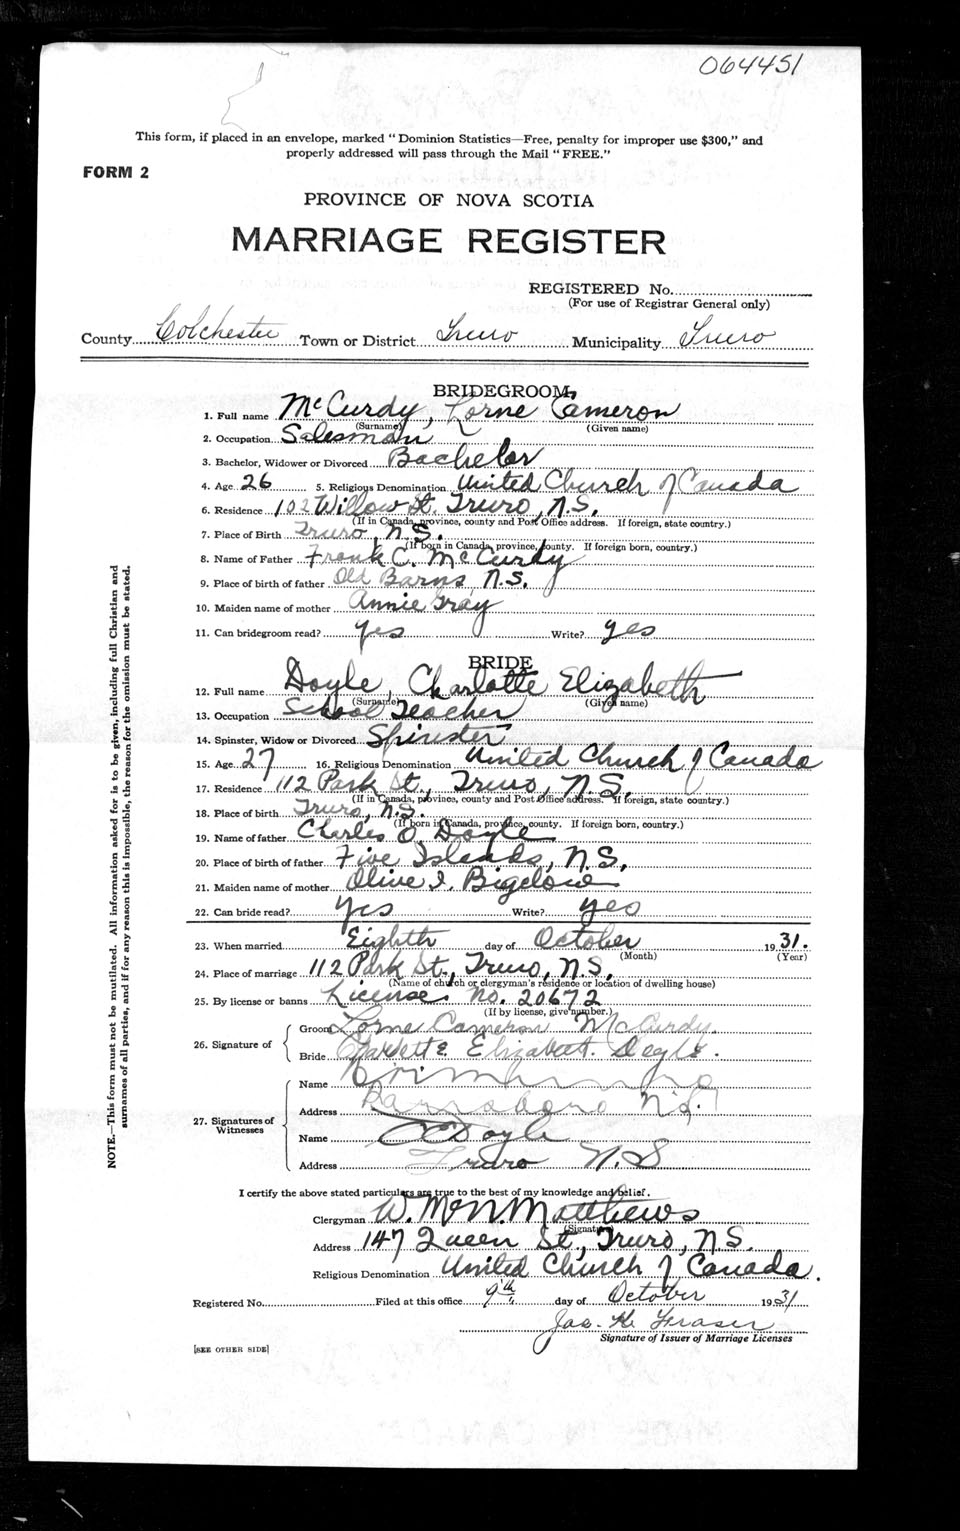 064451
This form, if placed in an envelope, marked "Dominion Statistics—Free, penalty for improper use $300," and
properly addressed will pass through the Mail "FREE."
FORM 2
PROVINCE OF NOVA SCOTIA
MARRIAGE REGISTER
REGISTERED No.
(For use of Registrar General only)
County Colchester Town or District Truro Municipality Truro
BRIDEGROOM
1. Full name McCurdy, Lorne Cameron
(Surname) (Given name)
2. Occupation Salesman
3. Bachelor, Widower or Divorced Bachelor
4. Age 26 5. Religious Denomination United Church of Canada
6. Residence 102 Willow St. Truro, N.S.
(If in Canada, province, county and Post Office address. If foreign, state country.)
7. Place of Birth Truro, N.S.
(If born in Canada, province, county. If foreign born, country.)
8. Name of Father Frank C. McCurdy
9. Place of birth of father Old Barns, N.S.
10. Maiden name of mother Annie Gray
11. Can bridegroom read? yes Write? yes
BRIDE
12. Full name Doyle, Charlotte Elizabeth
(Surname) (Given name)
13. Occupation School Teacher
14. Spinster, Widow or Divorced Spinster
15. Age 27 16. Religious Denomination United Church of Canada
17. Residence 112 Park St., Truro, N.S.
(If in Canada, province, county and Post Office address. If foreign, state country.)
18. Place of birth Truro, N.S.
(If born in Canada, province, county. If foreign born, country.)
19. Name of father Charles O. Doyle
20. Place of birth of father Five Islands, N.S.
21. Maiden name of mother Olive I. Bigelow
22. Can bride read? yes Write? yes
23. When married Eighth day of October 1931.
(Month) (Year)
24. Place of marriage 112 Park St., Truro, N.S.
(Name of church or clergyman's residence or location of dwelling house)
25. By license or banns License No. 20672
(If by license, give number.)
26. Signature of
Groom Lorne Cameron McCurdy.
Bride Charlotte Elizabeth Doyle.
27. Signatures of Witnesses
Name
Address Parrsboro N.S.
Name Doyle
Address Truro N.S
I certify the above stated particulars are true to the best of my knowledge and belief.
Clergyman W. McN. Matthews
(Signature)
Address 147 Queen St., Truro, N.S.
Religious Denomination United Church of Canada.
Registered No. Filed at this office 9th day of October 1931
Jas. K. Fraser
Signature of Issuer of Marriage Licenses
[SEE OTHER SIDE]
NOTE.—This form must not be mutilated. All information asked for is to be given, including full Christian and
surnames of all parties, and if for any reason this is impossible, the reason for the omission must be stated.